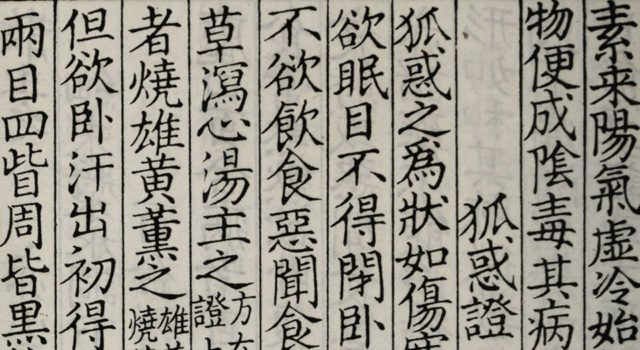 素来陽氣虛冷始
物便成陰毒其病
狐惑證
狐惑之爲狀如傷
欲眠目不得閇卧
不欲飲食惡聞食
草瀉心湯主之方在證
者燒雄黄薰之雄黄燒
但欲卧汗出初得
兩目四眥周皆黑